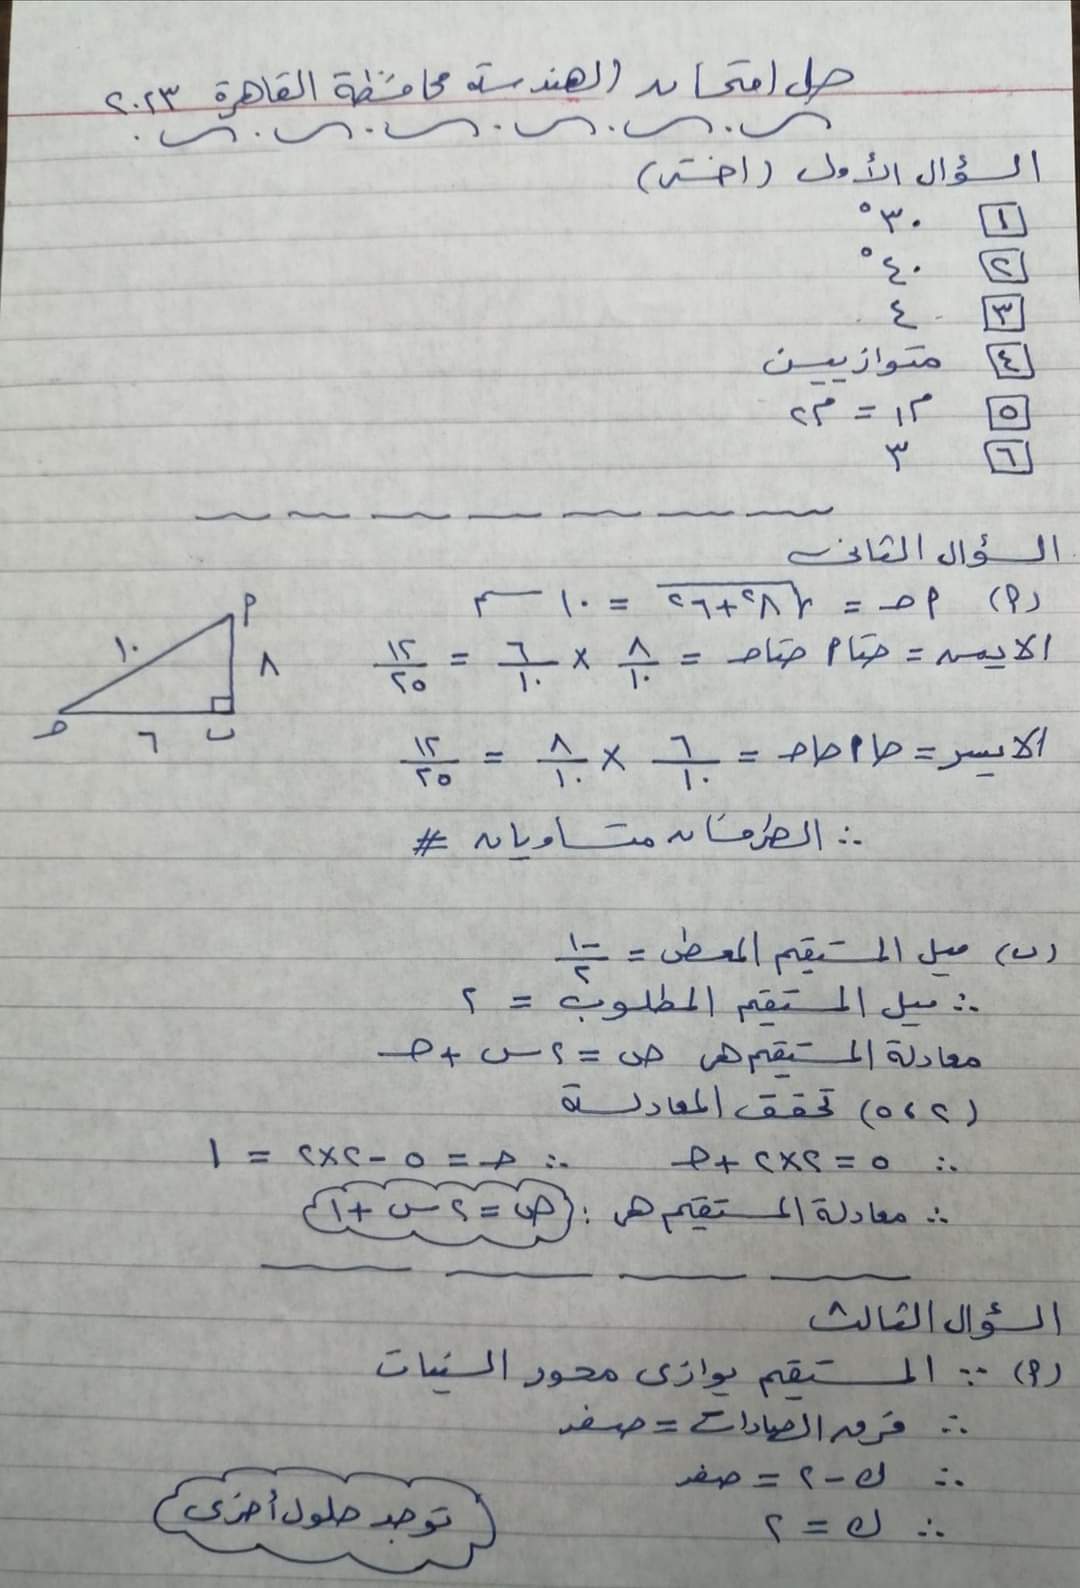 حل امتحان الهندسة محافظة القاهرة ٢٠٢٣
السؤال الأول (اختر)
١ ٣٠°
٢ ٤٠°
٣ ٤
٤ متوازيين
٥ م١ = م٢
٦ ٣
السؤال الثانى
(٩) ٩حـ = √(٨² + ٦²) = ١٠ سم
الايمن = حتا٩ حتاحـ = ٨/١٠ × ٦/١٠ = ١٢/٢٥
الايسر = حا٩ حاحـ = ٦/١٠ × ٨/١٠ = ١٢/٢٥
∴ الطرفان متساويان #
٩ ١٠ ٨ حـ ٦ ب
(ب) ميل المستقيم المعطى = -١/٢
∴ ميل المستقيم المطلوب = ٢
معادلة المستقيم هى ص = ٢س + حـ
(٢، ٥) تحقق المعادلة
∴ ٥ = ٢×٢ + حـ ∴ حـ = ٥ - ٢×٢ = ١
∴ معادلة المستقيم هى : ص = ٢س + ١
السؤال الثالث
(٩) ∵ المستقيم يوازى محور السينات
∴ فرق الصادات = صفر
∴ ك - ٢ = صفر
∴ ك = ٢
توجد حلول أخرى